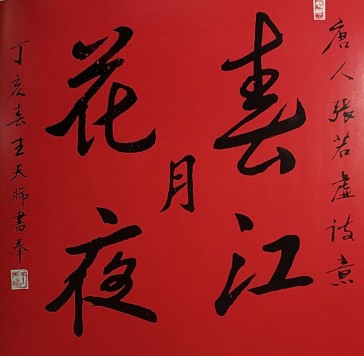 唐人張若虛詩意
春江
月
花夜
丁亥春王天師書奉